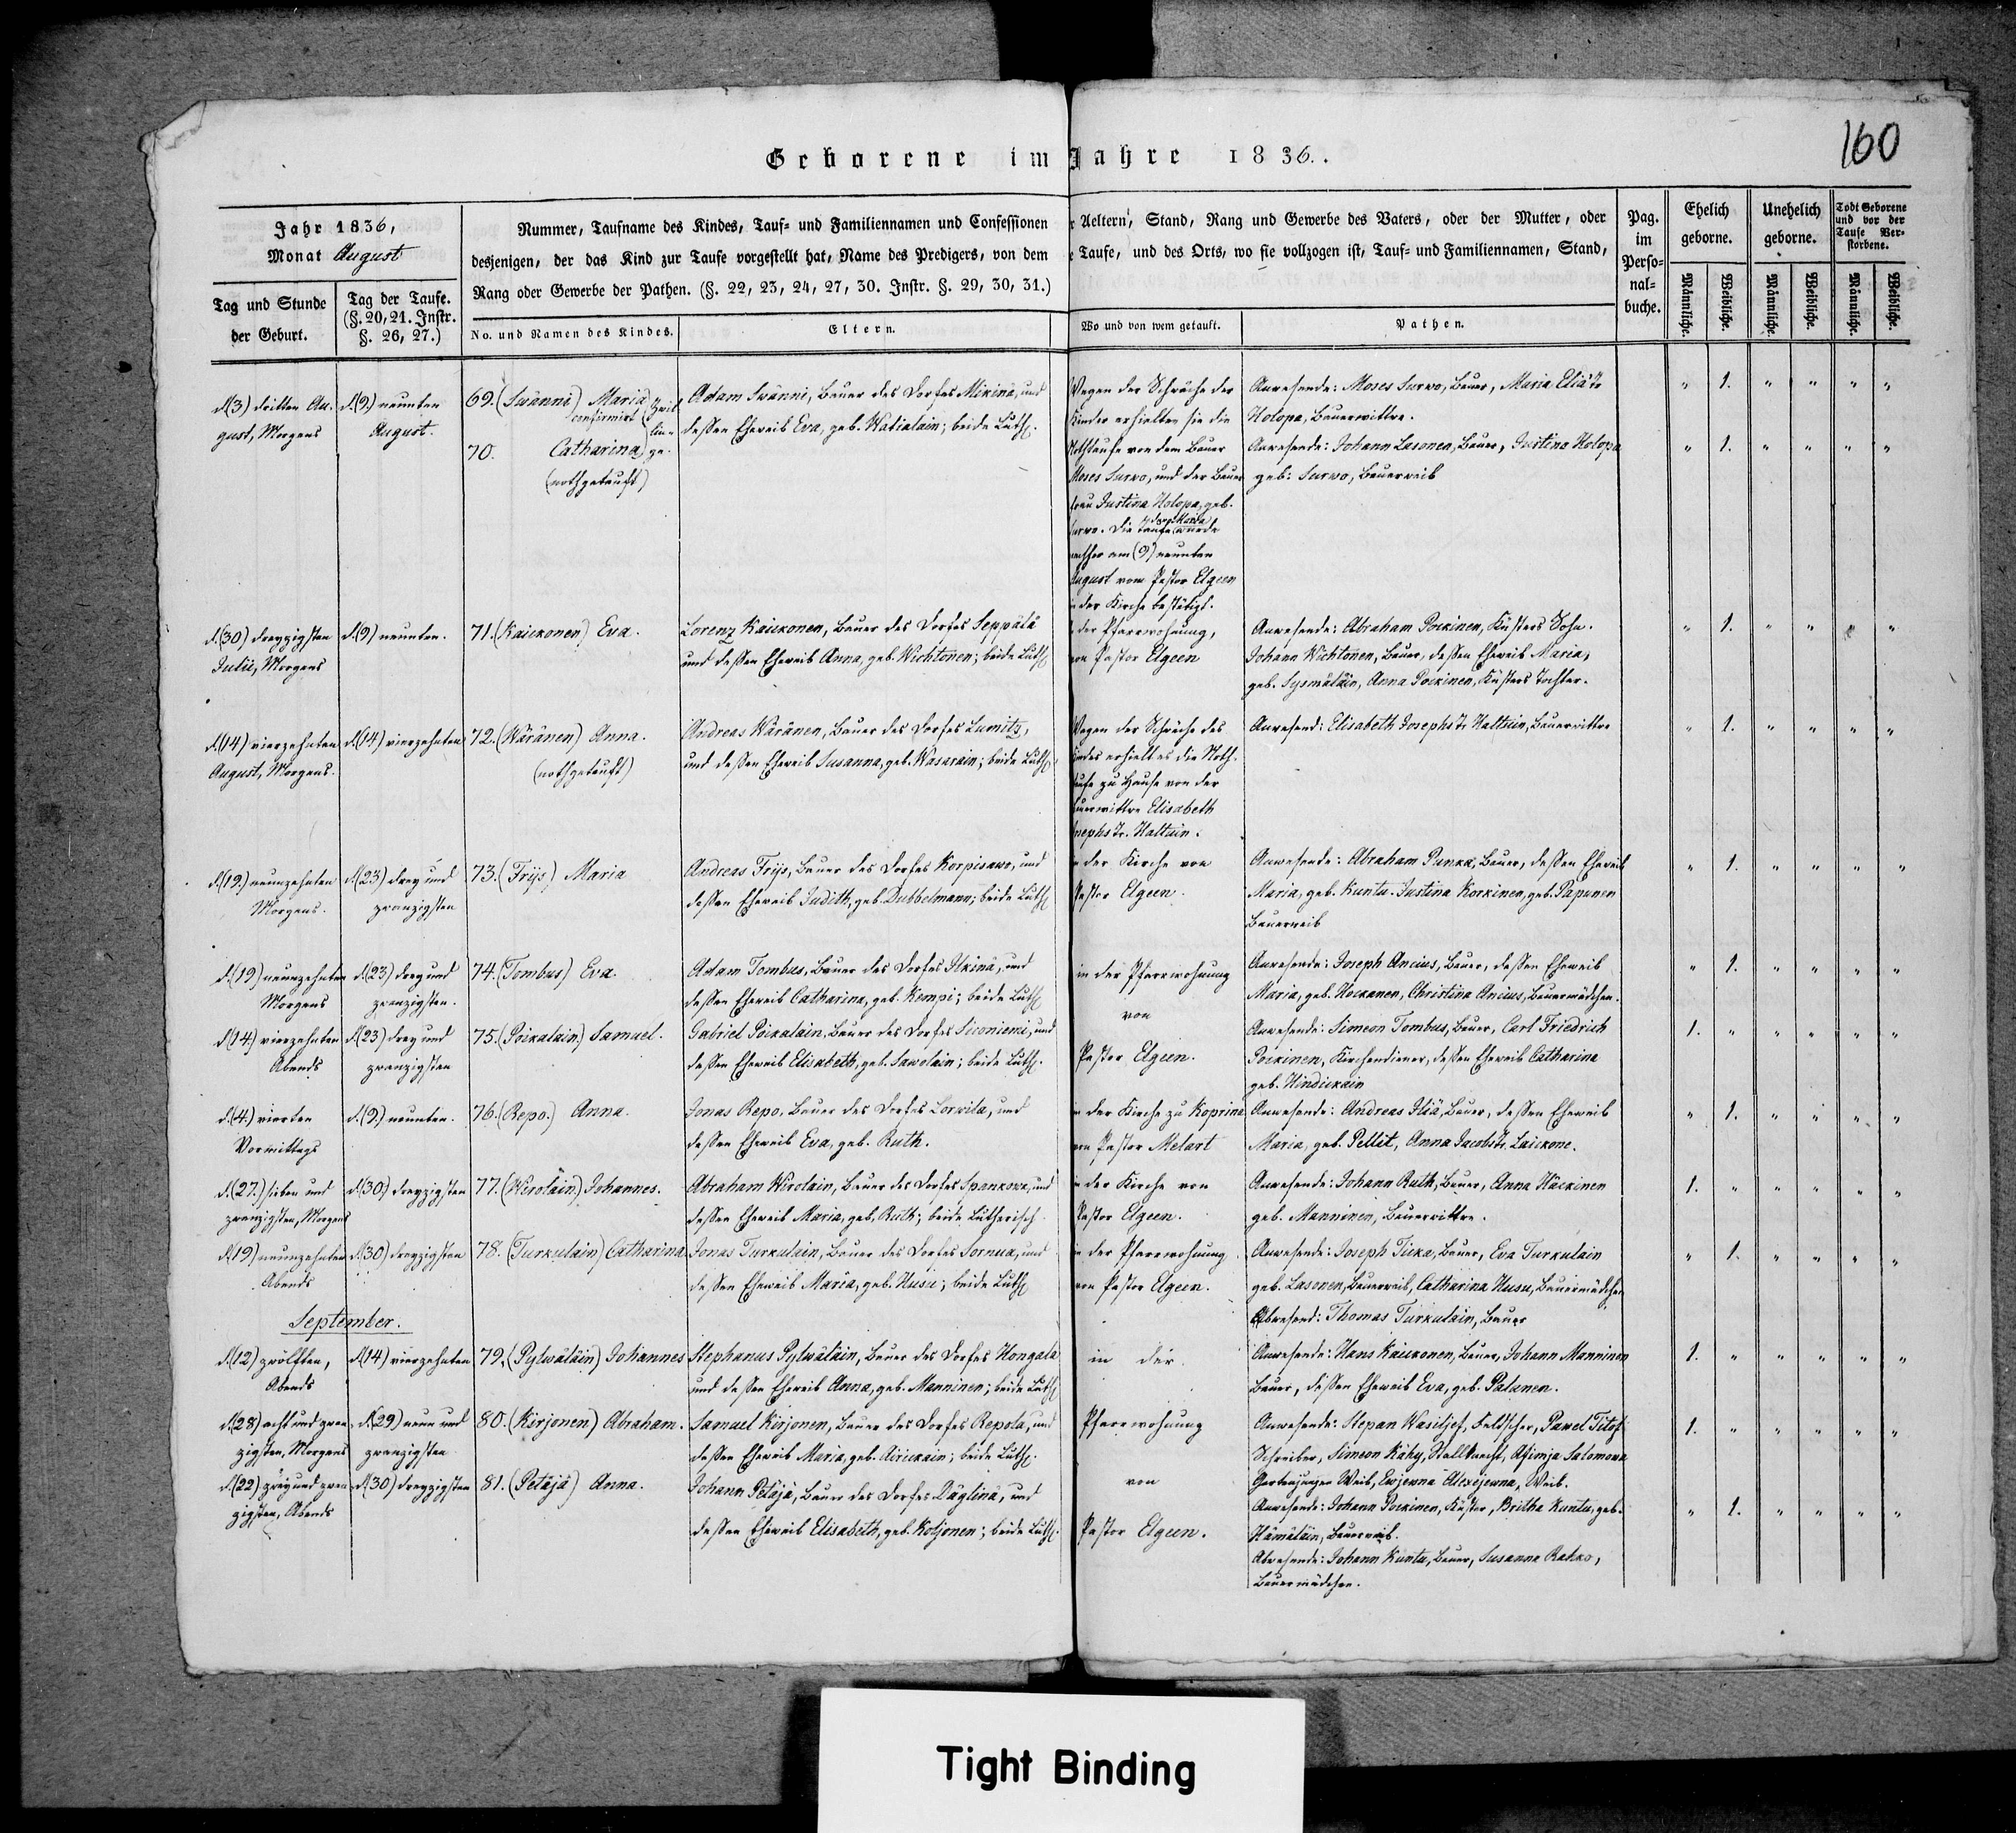 160
Geborene im Jahre 1836.
Jahr 1836,
Monat August
Nummer, Taufname des Kindes, Tauf- und Familiennamen und Confessionen
desjenigen, der das Kind zur Taufe vorgestellt hat, Name des Predigers, von dem
Rang oder Gewerbe der Pathen. (§. 22, 23, 24, 27, 30. Instr. §. 29, 30, 31.)
r Aeltern, Stand, Rang und Gewerbe des Vaters, oder der Mutter, oder
e Taufe, und des Orts, wo sie vollzogen ist, Tauf- und Familiennamen, Stand,
Pag.
im
Perso-
nal-
buche.
Ehelich
geborne.
Unehelich
geborne.
Todt Geborene
und vor der
Taufe Ver-
storbene.
Männliche.
Weibliche.
Männliche.
Weibliche.
Männliche.
Weibliche.
Tag und Stunde
der Geburt.
Tag der Taufe.
(§. 20, 21. Instr.
§. 26, 27.)
No. und Namen des Kindes.
Eltern.
Wo und von wem getauft.
Pathen.
d. (3) dritten Au-
gust, Morgens
d. (9.) neunten
August.
69. (Swänni) Maria
confirmirt
70. Catharina
(nothgetauft)
Zwil
lin-
ge.
Adam Swänni, Bauer des Dorfes Mikina, und
deßen Eheweib Eva, geb. Watialain; beide Luth.
Wegen der Schwäche der
Kinder erhielten sie die
Nothtaufe von dem Bauer
Moses Surwo, und der Bauer
frau Justina Holopa, geb.
urwo. Die Taufe der Maria wurde
nachher am (9) neunten
August vom Pastor Elgeen
in der Kirche bestätigt.
Anwesende: Moses Surwo, Bauer, Maria Eliä Tr
Holopa, Bauerwittwe.
Anwesende: Johann Lasonen, Bauer, Justina Holopa
geb: Surwo, Bauerweib
" 1. " " " "
" 1. " " " "
d. (30) dreyzigsten
Julii, Morgens
d. (9) neunten.
71. (Kaickonen) Eva.
Lorenz Kaickonen, Bauer des Dorfes Seppälä
und deßen Eheweib Anna, geb. Wichtonen; beide Luth
der Pfarrwohnung,
von Pastor Elgeen
Anwesende: Abraham Poikinen, Küsters Sohn.
Johann Wichtonen, Bauer, deßen Eheweib Maria,
geb. Sysmäläin, Anna Poikinen, Küsters Tochter.
" 1. " " " "
d. (14) vierzehnten
August, Morgens.
d. (14) vierzehnten
72. (Wäränen) Anna.
(nothgetauft)
Andreas Wäränen, Bauer des Dorfes Lumitz,
und deßen Eheweib Susanna, geb. Wasarain; beide Luth
Wegen der Schwäche des
Kindes erhielt es die Noth-
taufe zu Hause von der
Bauerwittwe Elisabeth
osephs Tr. Haltuin.
Anwesend: Elisabeth Josephs Tr Haltuin, Bauerwittwe
" 1. " " " "
d. (19.) neunzehnten
Morgens.
d. (23) drey und
zwanzigsten
73. (Frijs) Maria
Andreas Frijs, Bauer des Dorfes Korpisawo, und
deßen Eheweib Judith, geb. Dubbelmann; beide Luth
in der Kirche von
Pastor Elgeen.
Anwesende: Abraham Punka, Bauer, deßen Eheweib
Maria, geb. Kuntu. Justina Korkinen, geb. Papunen
Bauerweib
" 1. " " " "
d. (19) neunzehnten
Morgens
d. (23) drey und
zwanzigsten.
74. (Tombus) Eva.
Adam Tombus, Bauer des Dorfes Ilkinä, und
deßen Eheweib Catharina, geb. Kempi; beide Luth
in der Pfarrwohnung
von
Pastor Elgeen.
Anwesende: Joseph Ancius, Bauer, deßen Eheweib
Maria, geb. Hockanen, Christina Ancius, Bauermädchen.
" 1. " " " "
d. (14) vierzehnten
Abends
d. (23) drey und
zwanzigsten
75. (Poikalain) Samuel.
Gabriel Poikalain, Bauer des Dorfes Siconiemi, und
deßen Eheweib Elisabeth, geb. Sawolain; beide Luth.
Anwesende: Simeon Tombus, Bauer, Carl Friedrich
Poikinen, Kirchendiener, deßen Eheweib Catharina
geb. Hindickain
1. " " " " "
d. (4) vierten
Vormittags
d. (9.) neunten.
76. (Repo.) Anna.
Jonas Repo, Bauer des Dorfes Lorwila, und
deßen Eheweib Eva, geb. Ruth.
in der Kirche zu Koprina
von Pastor Melart
Anwesende: Andreas Iliä, Bauer, deßen Eheweib
Maria, geb. Pellit, Anna Jacobs Tr. Laickone.
" 1. " " " "
d. (27.) sieben und
zwanzigsten, Morgens
d. (30.) dreyzigsten
77. (Wirolain) Johannes.
Abraham Wirolain, Bauer des Dorfes Spankowa, und
deßen Eheweib Maria, geb. Ruth; beide Lutherisch
in der Kirche von
Pastor Elgeen.
Anwesende: Johann Ruth, Bauer, Anna Häckinen
geb. Manninen, Bauerwittwe.
1. " " " " "
d. (19) neunzehnten
Abends
d. (30) dreyzigsten
78. (Turkulain) Catharina
Jonas Turkulain, Bauer des Dorfes Sornua, und
deßen Eheweib Maria, geb. Husu; beide Luth
in der Pfarrwohnung
von Pastor Elgeen.
Anwesende: Joseph Ticka, Bauer, Eva Turkulain
geb. Lasonen, Bauerweib, Catharina Husu, Bauermädchen
Abwesend: Thomas Turkulain, Bauer
" 1. " " " "
September.
d. (12) zwölften,
Abends
d. (14) vierzehnten
79. (Pylwäläin) Johannes
Stephanus Pylwäläin, Bauer des Dorfes Hongala
und deßen Eheweib Anna, geb. Manninen; beide Luth
in der
Pfarrwohnung
von
Pastor Elgeen.
Anwesende: Hans Kaickonen, Bauer, Johann Manninen
Bauer, deßen Eheweib Eva, geb. Patanen.
1. " " " " "
d. (28) acht und zwan
zigsten, Morgens
d. (29) neun und
zwanzigsten
80. (Kirjonen) Abraham.
Samuel Kirjonen, Bauer des Dorfes Repola, und
deßen Eheweib Maria, geb. ; beide Luth.
Anwesende: Stepan Wasiljef, Feldscher, Pawel Titof
Schreiber, Simeon Kähy, Stallknecht, Afimja Salomona
Weib, Alexejewna, Weib.
1. " " " " "
d. (22) zwey und zwan
zigsten, Abends
d. (30) dreyzigsten
81. (Petäjä) Anna.
Johann Petäjä, Bauer des Dorfes Däglinä, und
deßen Eheweib Elisabeth, geb. Koljonen; beide Luth.
Anwesende: Johann Poikinen, Küster, Britha Kuntu, geb.
Hämäläin, Bauerweib.
Abwesende: Johann Kuntu, Bauer, Susanna Rakko,
Bauermädchen.
" 1. " " " "
Tight Binding